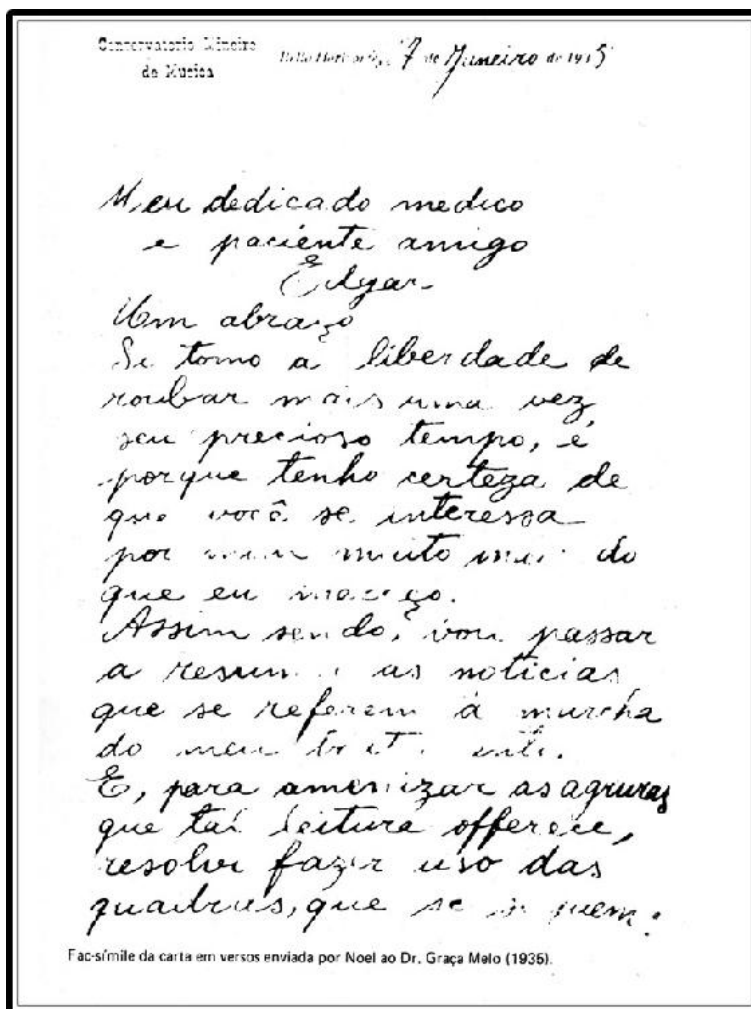 Conservatorio Mineiro
de Musica
Bello Horizonte, 7 de Janeiro de 1935
Meu dedicado medico
e paciente amigo
Edgar
Um abraço
Se tomo a liberdade de
roubar mais uma vez
seu precioso tempo, é
porque tenho certeza de
que você se interessa
por mim muito mais do
que eu mereço.
Assim sendo, vou passar
a resumir as noticias
que se referem á marcha
do meu tratamento.
E, para amenizar as agruras
que tal leitura offerece,
resolvi fazer uso das
quadras, que se seguem:
Fac-símile da carta em versos enviada por Noel ao Dr. Graça Melo (1935).